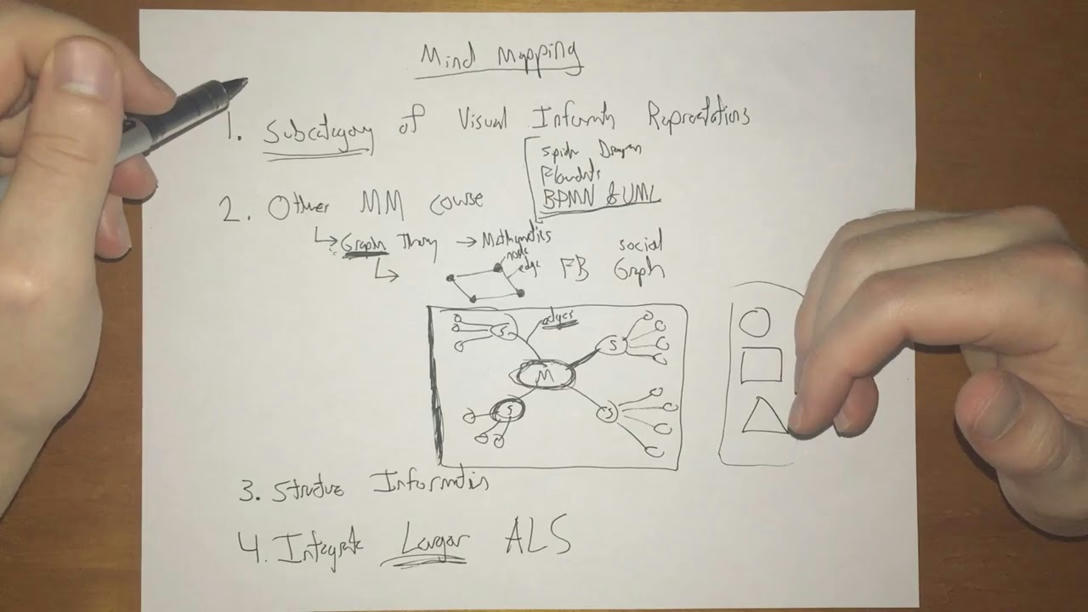 Mind Mapping
1. Subcategory of Visual Informatn Representations
Spider Diagram
Flowcharts
BPMN & UML
2. Other MM course
Graph Theory → Mathematics
node
edge
FB social Graph
edges
S
S
M
S
S
3. Structure Information
4. Integrate Larger ALS